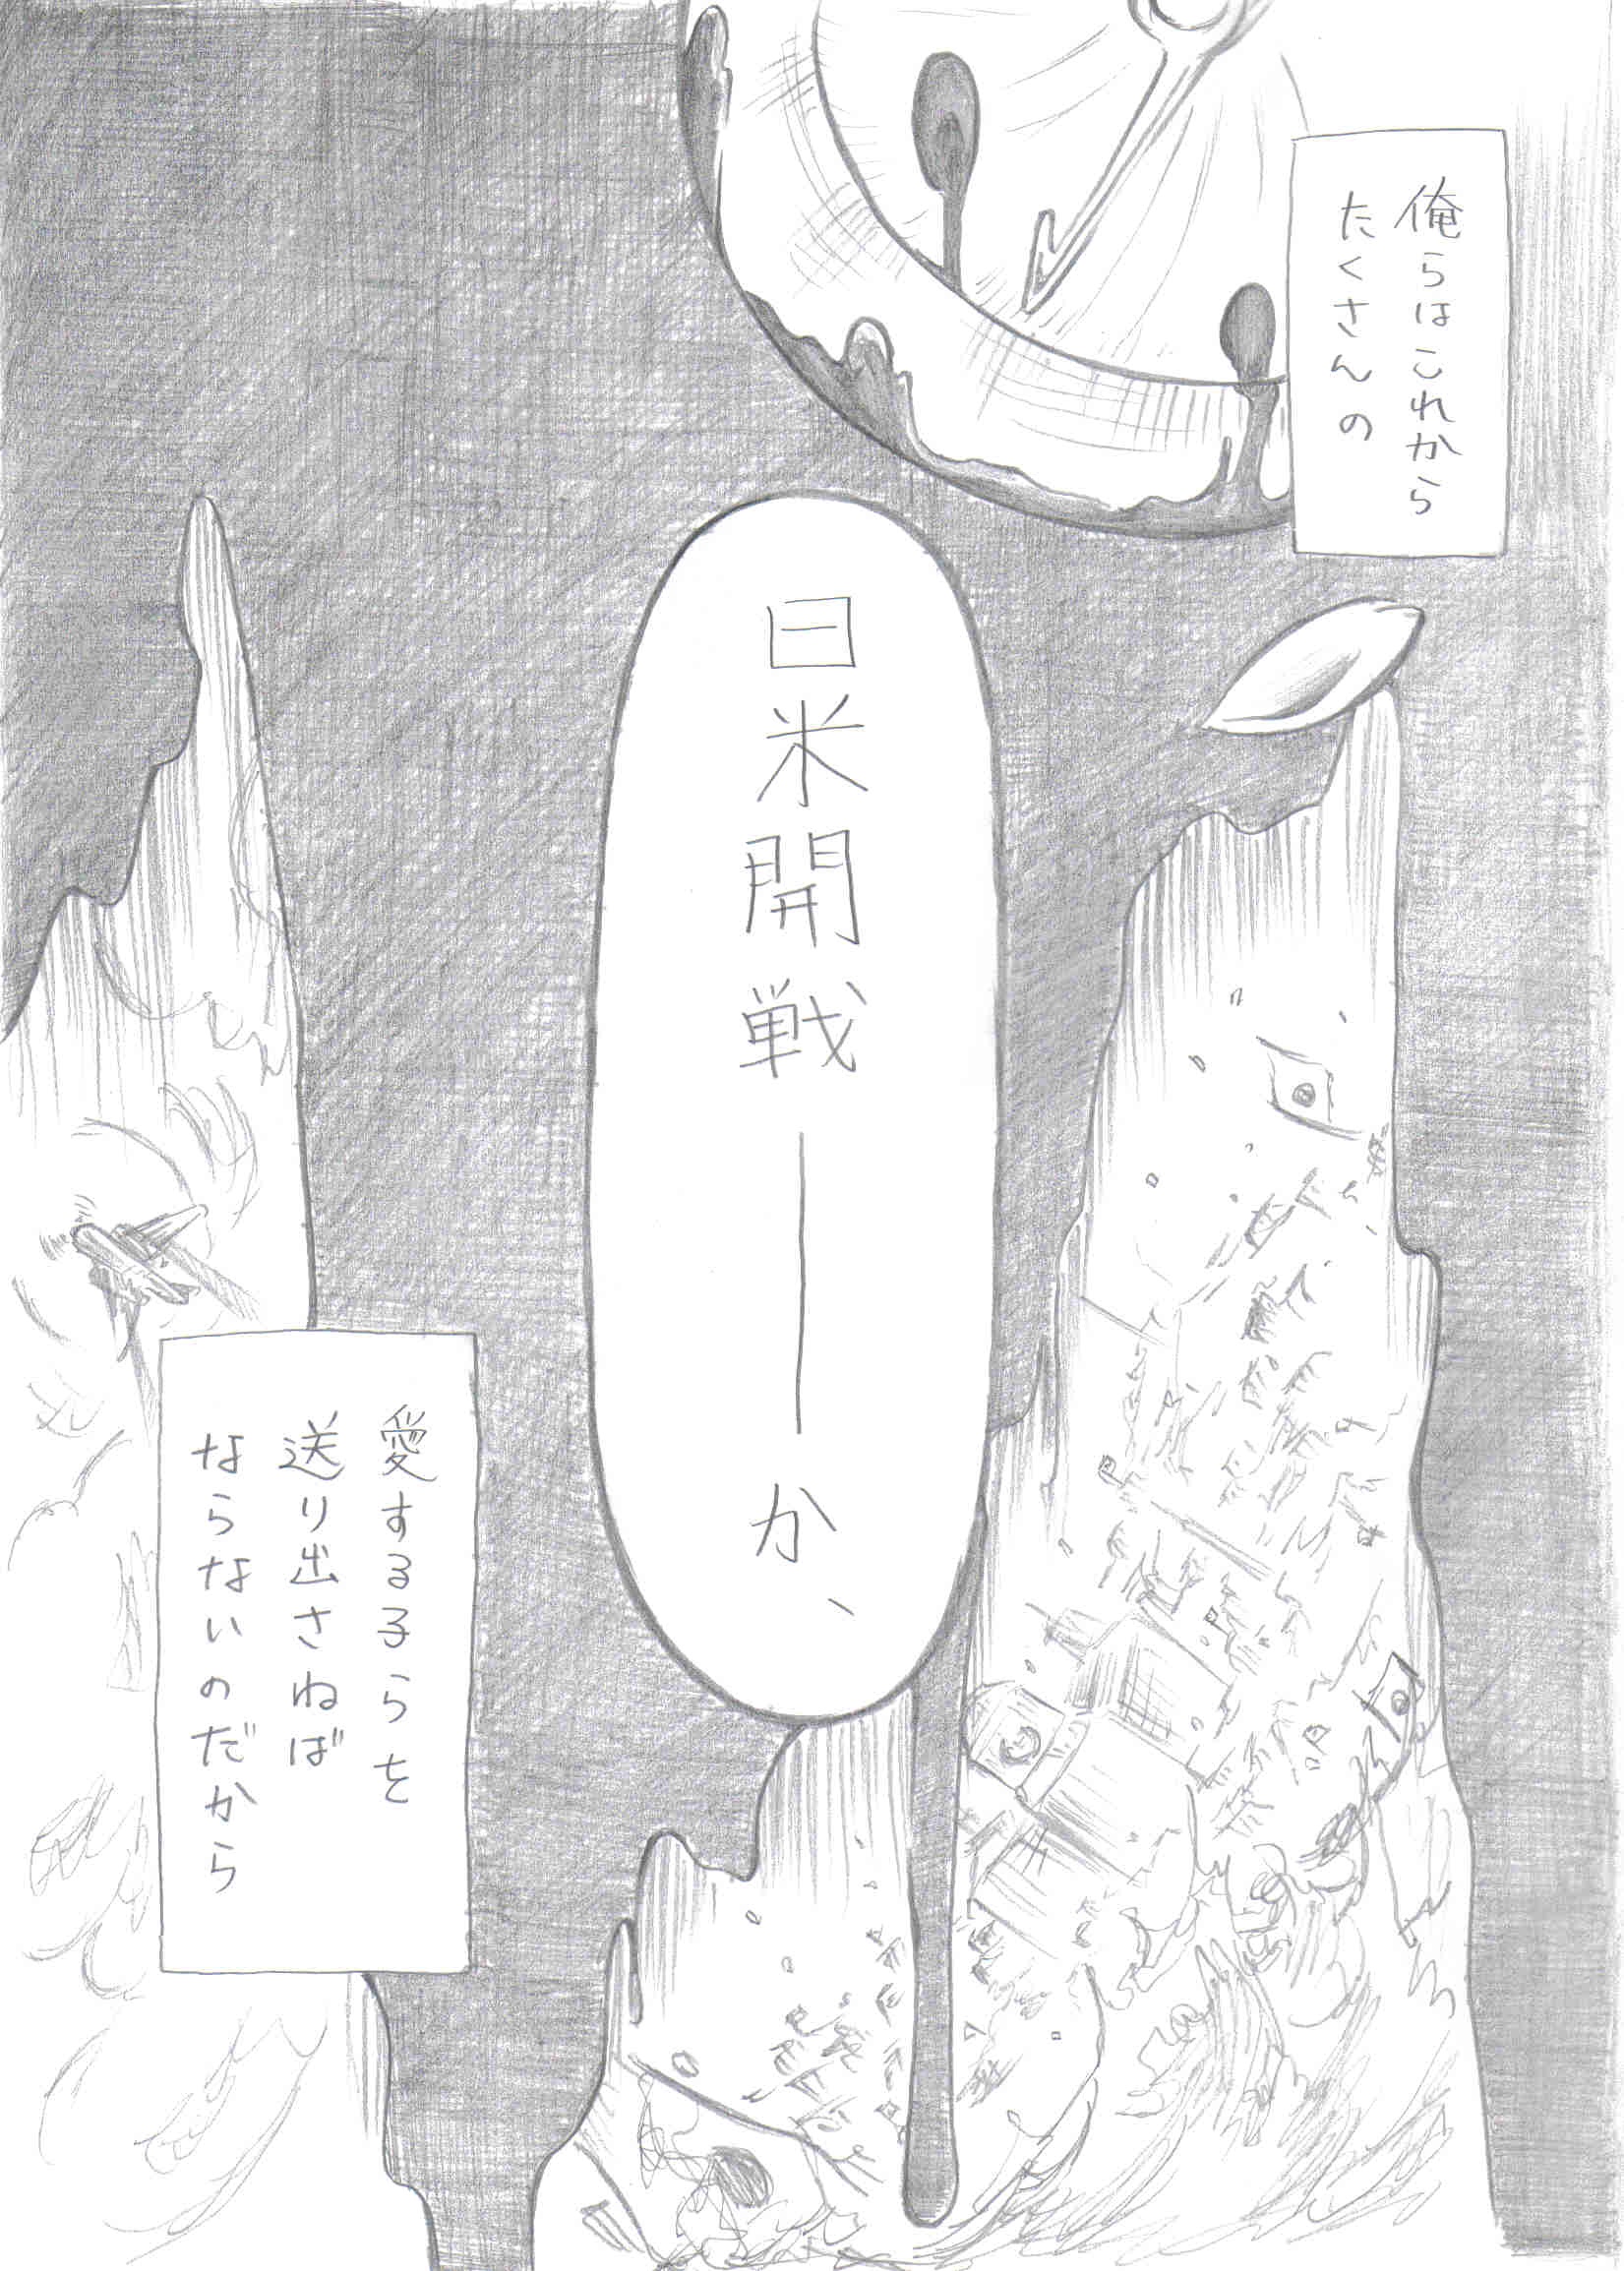 俺らはこれから
たくさんの
日米開戦――か、
愛する子らを
送り出さねば
ならないのだから